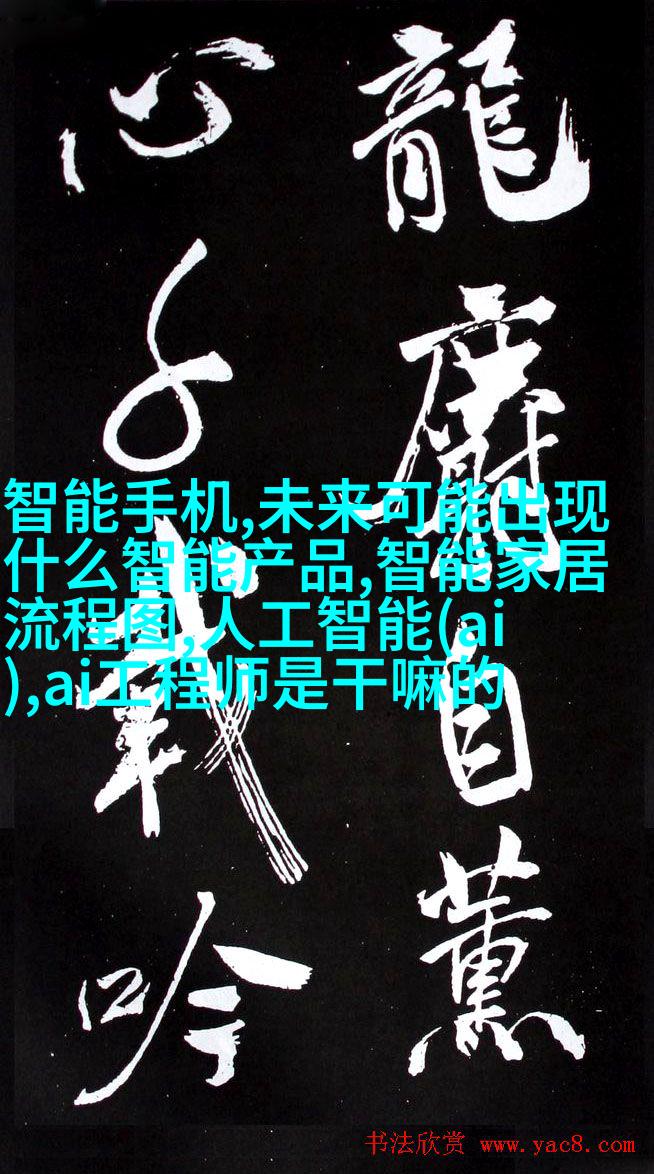 龍自薰
心千載吟
智能手机,未来可能出现
什么智能产品,智能家居
流程图,人工智能(ai
),ai工程师是干嘛的
书法欣赏 www.yac8.com